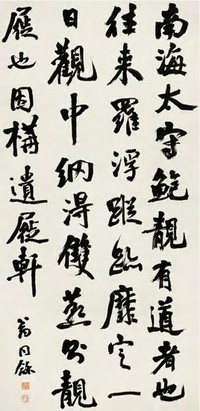 南海太守鮑靚有道者也
往来羅浮蹤跡靡定一
日觀中網得雙燕乃靚
履也因構遺履軒
翁同龢